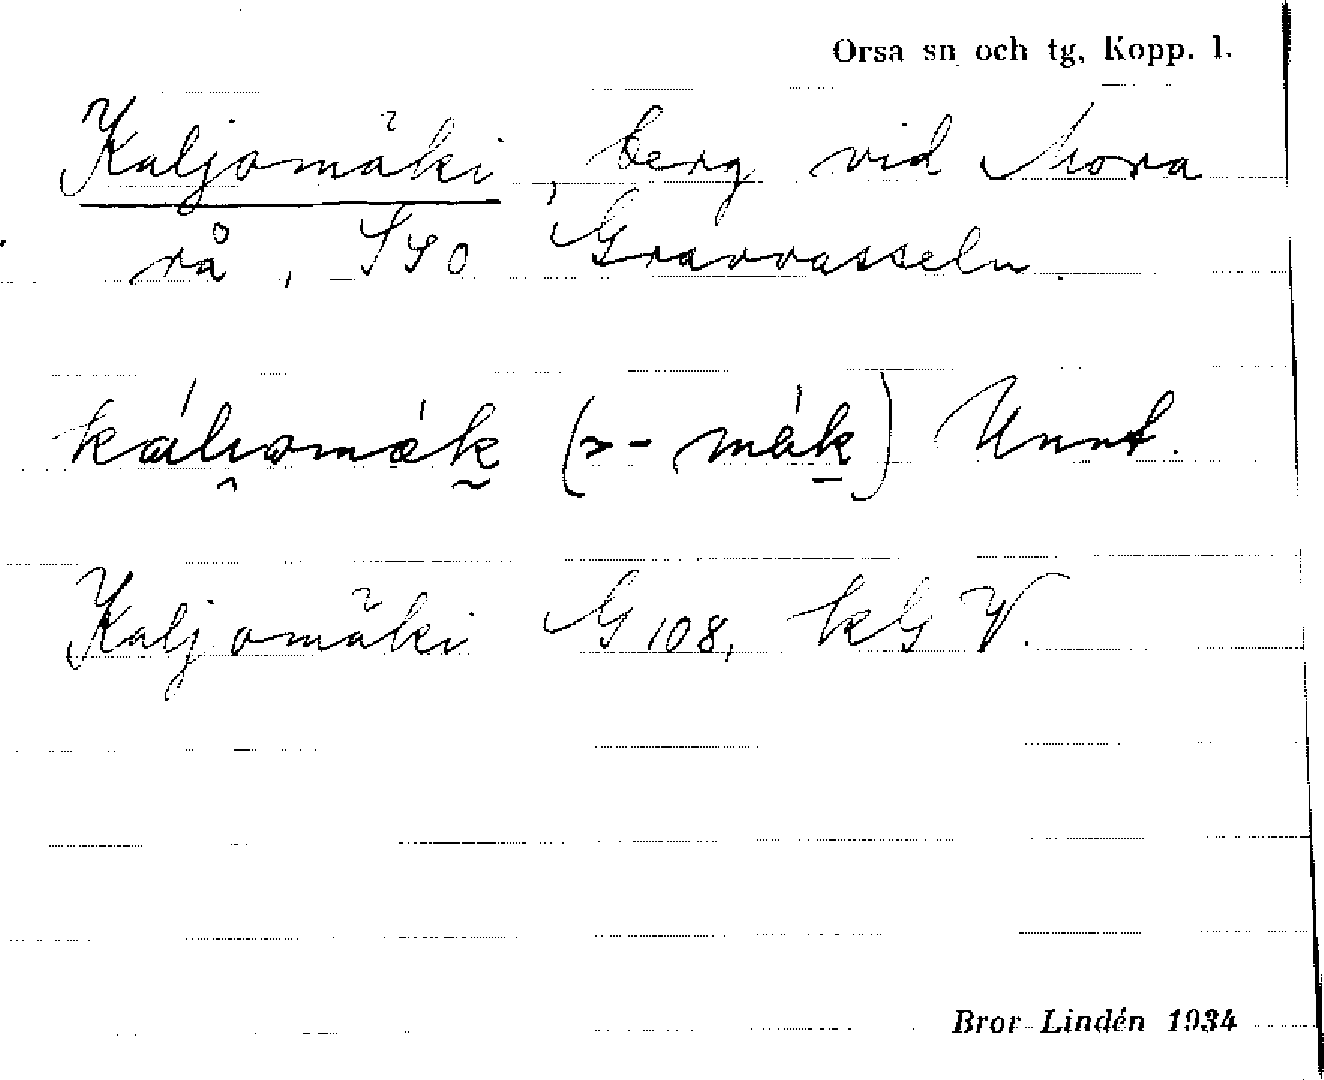 Orsa sn och tg, Kopp. l.
Kaljomäki, berg vid Mora
rå, SSO Gravvasseln.
(>- màk) Unnt.
Kaljomäki G 108, kG V.
Bror Lindén 1934